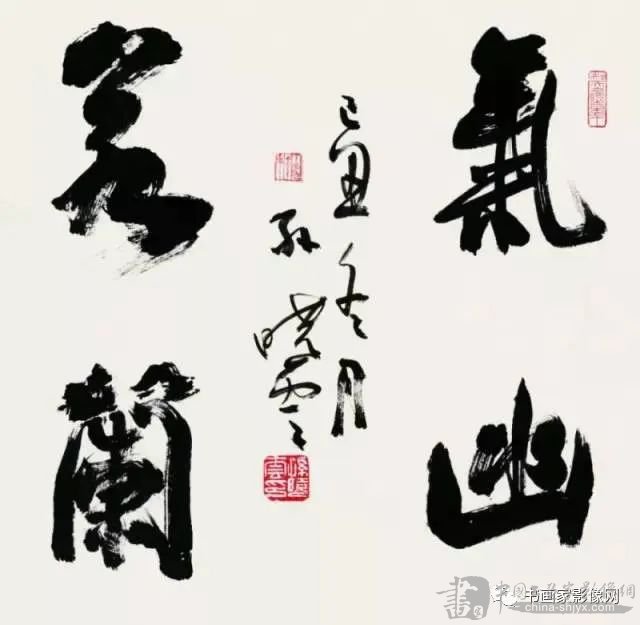 氣幽
若蘭
己丑冬月
孫曉雲
孫曉雲印
书画家影像网
china-shjyx.com